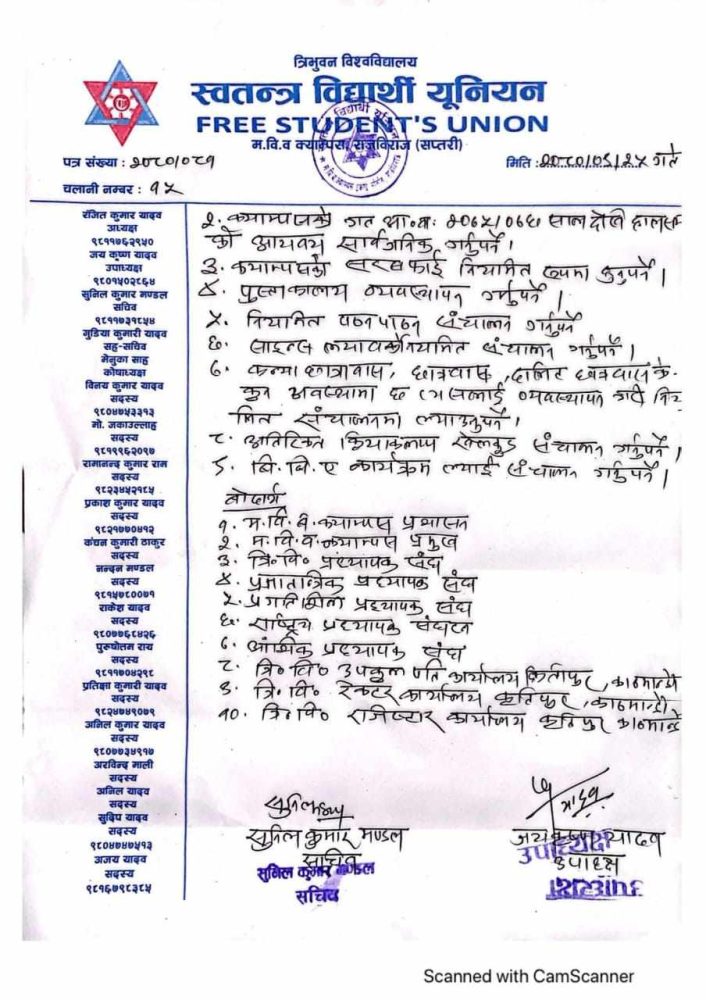 त्रिभुवन विश्वविद्यालय
स्वतन्त्र विद्यार्थी यूनियन
FREE STUDENT'S UNION
म.वि.व क्याम्पस, राजविराज (सप्तरी)
पत्र संख्या : २०८०/०८१
मिति : २०८०/०६/२५ गते
चलानी नम्बर : १५
रंजित कुमार यादव
अध्यक्ष
९८११७६२९५०
जय कृष्ण यादव
उपाध्यक्ष
९८०१५०२८६४
सुनिल कुमार मण्डल
सचिव
९८११७३१८५४
गुडिया कुमारी यादव
सह-सचिव
मेनुका साह
कोषाध्यक्ष
विनय कुमार यादव
सदस्य
९८०४७५३३१३
मो. जकाउल्लाह
सदस्य
९८१९९६२०९७
रामानन्द कुमार राम
सदस्य
९८२३४५२१८५
प्रकाश कुमार यादव
सदस्य
९८२१७७०४१२
कंचन कुमारी ठाकुर
सदस्य
नन्दन मण्डल
सदस्य
९८१५७८००७१
राकेश यादव
सदस्य
९८०७७६८४२६
पुरुषोतम राय
सदस्य
९८११७०४२९८
प्रतिक्षा कुमारी यादव
सदस्य
९८२४७४९०७९
अनिल कुमार यादव
सदस्य
९८०७७३४९१७
अरविन्द माली
सदस्य
अनिल यादव
सदस्य
सुदिप यादव
सदस्य
९८०४७४७५१३
अजय यादव
सदस्य
९८१६७९८३८५
२. क्याम्पसको गत आ.व. २०६५/०६६ साल देखी हालसम्म
को आयव्यय सार्वजनिक गर्नुपर्ने ।
३. क्याम्पसको सरसफाई नियामित रूपमा हुनुपर्ने ।
४. पुस्तकालय व्यवस्थापन गर्नुपर्ने ।
५. नियामित पठनपाठन संचालन गर्नुपर्ने
६. साइन्स ल्याब नियामित संचालन गर्नुपर्ने ।
७. कन्या छात्रावास, छात्रवास, दलित छात्रवास के
कुन अवस्थामा छ त्यसलाई व्यवस्थापन गरी निय
मित संचालनमा ल्याउनुपर्ने ।
८. अतिरिक्त क्रियाकलाप खेलकुद संचालन गर्नुपर्ने ।
९. बि. बि. ए कार्यक्रम ल्याई संचालन गर्नुपर्ने ।
बोधार्थ
१. म. वि. ब. क्याम्पस प्रशासन
२. म. वि. ब. क्याम्पस प्रमुख
३. त्रि॰ वि॰ प्रध्यापक संघ
४. प्रजातान्त्रिक प्रध्यापक संघ
५. प्रगतिशिल प्रध्यापक संघ
६. राष्ट्रिय प्रध्यापक संगठन
७. आंशिक प्रध्यापक संघ
८. त्रि॰ वि॰ उपकुलपति कार्यालय किर्तिपुर, काठमान्डौ
९. त्रि. वि॰ रेक्टर कार्यालय कृतिपुर, काठमान्डौ
१०. त्रि॰ वि॰ राजिष्टार कार्यालय कृतिपुर काठमान्डौ
सुनिल
सुनिल कुमार मण्डल
सचिव
सुनिल कुमार मण्डल
सचिव
जयकृष्ण यादव
उपाध्यक्ष
उपाध्यक्ष
Scanned with CamScanner